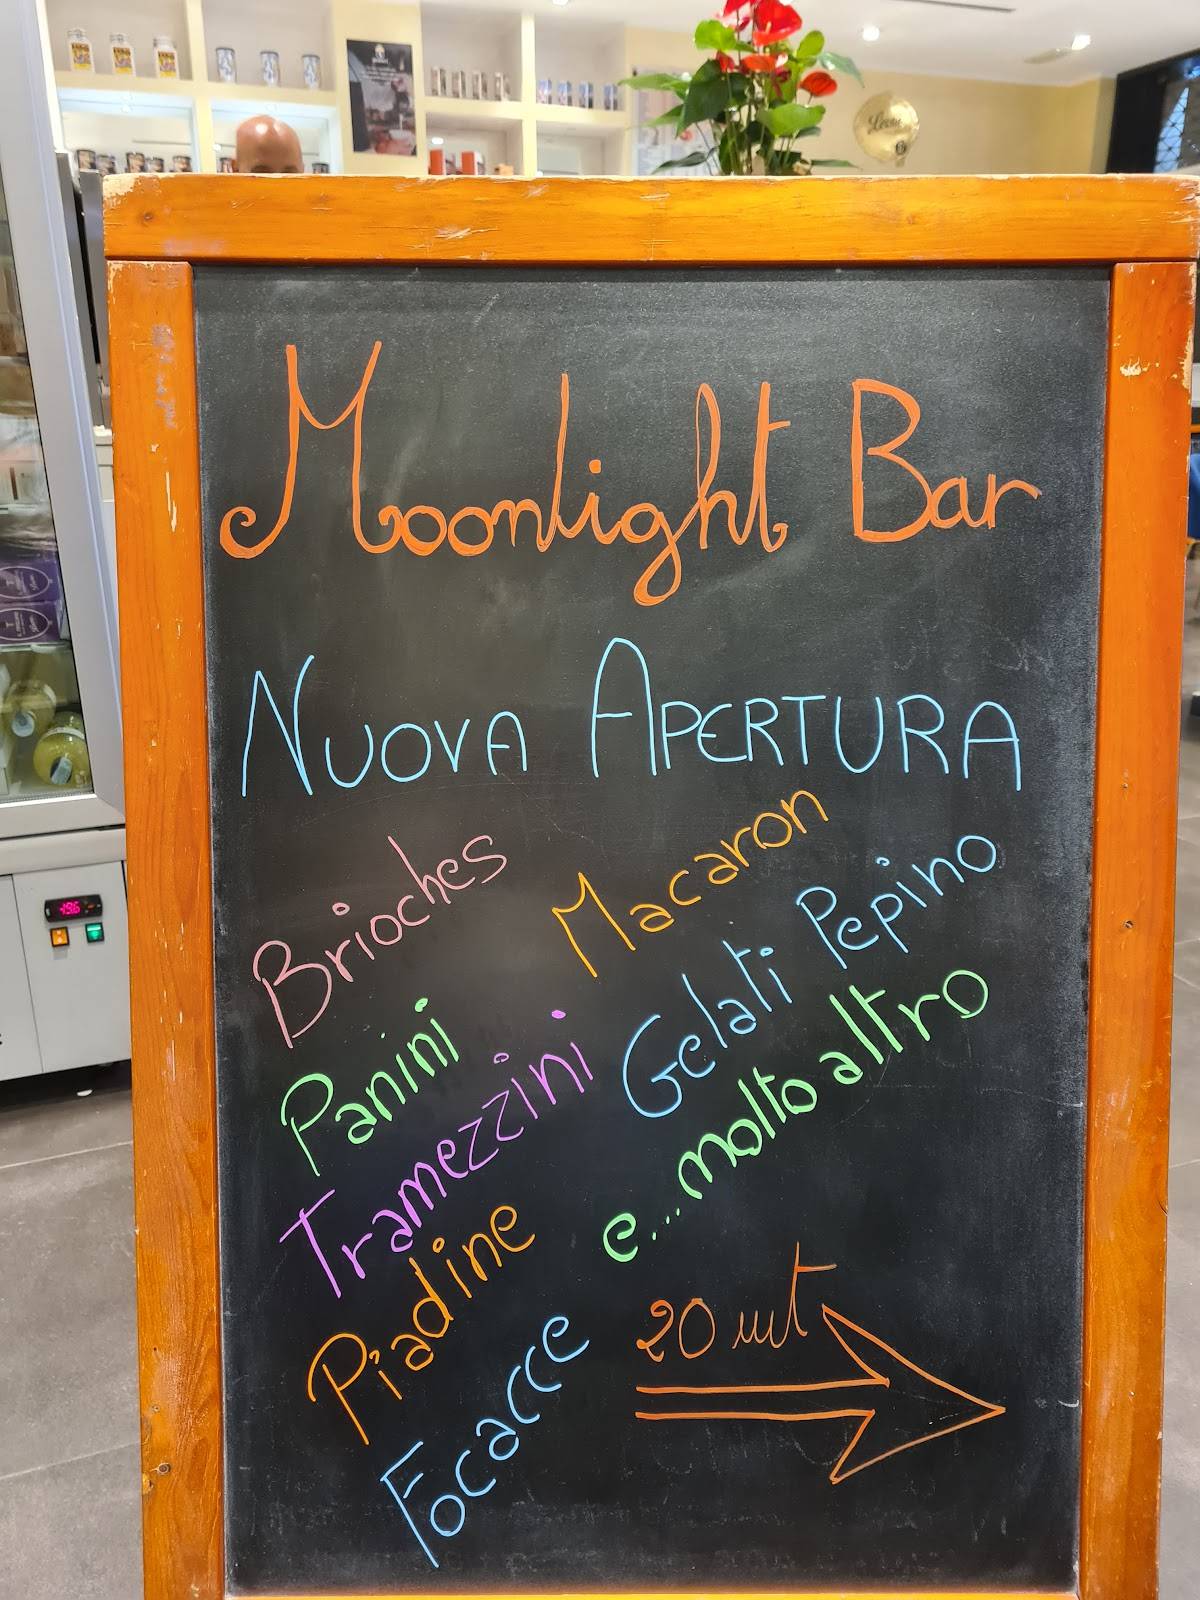 Moonlight Bar
NUOVA APERTURA
Brioches
Macaron
Panini
Gelati Pepino
Tramezzini
e...molto altro
Piadine
Focacce
20 mt